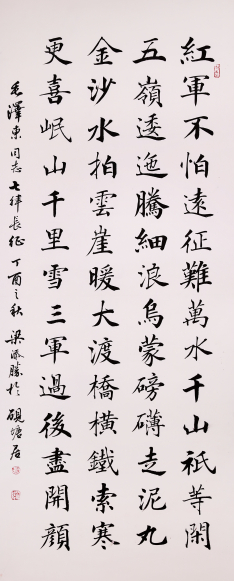 紅軍不怕遠征難萬水千山祇等閑
五嶺逶迤騰細浪烏蒙磅礴走泥丸
金沙水拍雲崖暖大渡橋橫鐵索寒
更喜岷山千里雪三軍過後盡開顏
毛澤東同志七律長征丁酉之秋梁勝於硯塘居